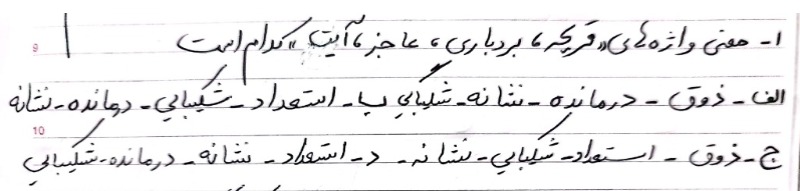 ۱- معنی واژه‌های «قریحه، بردباری، عاجز، آیت» کدام است
الف- ذوق - درمانده - نشانه - شکیبایی ب- استعداد - شکیبایی - درمانده - نشانه
ج- ذوق - استعداد - شکیبایی - نشانه د- استعداد - نشانه - درمانده - شکیبایی